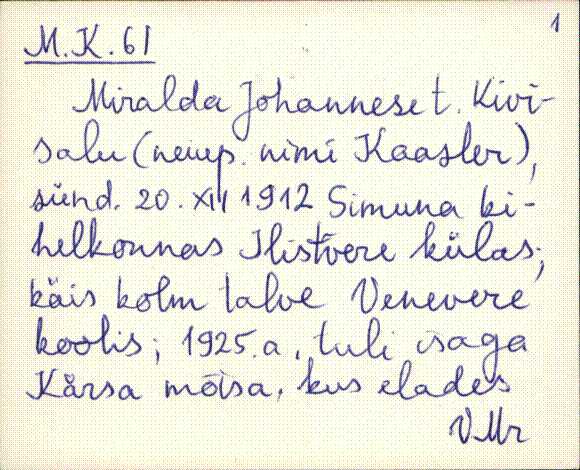 1
M.K. 61
Miralda Johannese t. Kivi-
salu (neiup. nimi Kaasler),
sünd. 20. XII 1912 Simuna ki-
helkonnas Ilistvere külas;
käis kolm talve Venevere
koolis; 1925.a. tuli isaga
Kärsa mõisa, kus elades
VMr